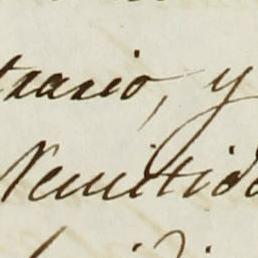 trario, y
Remitido